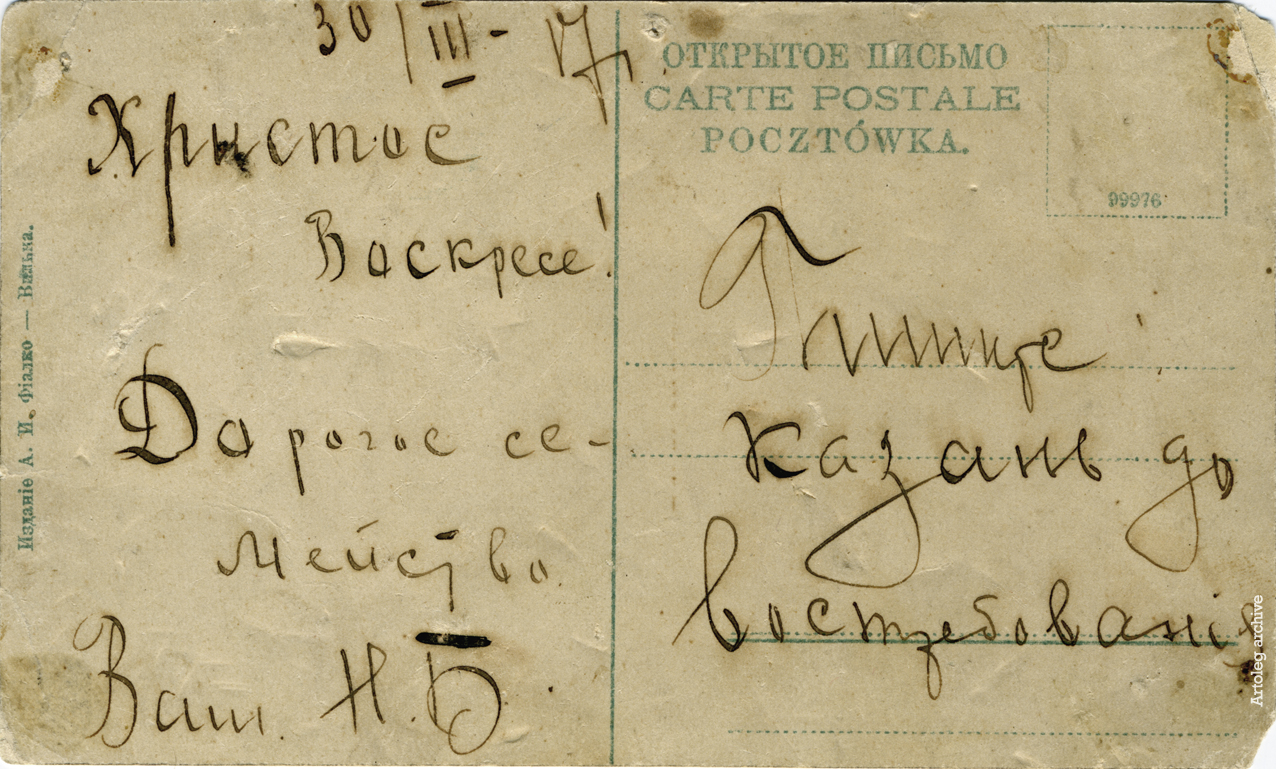 30/III - 17
Христос
Воскресе!
Дорогое се-
мейство
Ваш Н.Б.
ОТКРЫТОЕ ПИСЬМО
CARTE POSTALE
POCZTÓWKA.
99976
Казань до
востребованія
Изданіе А. И. Фіалко — Вильна.
Artoleg archive